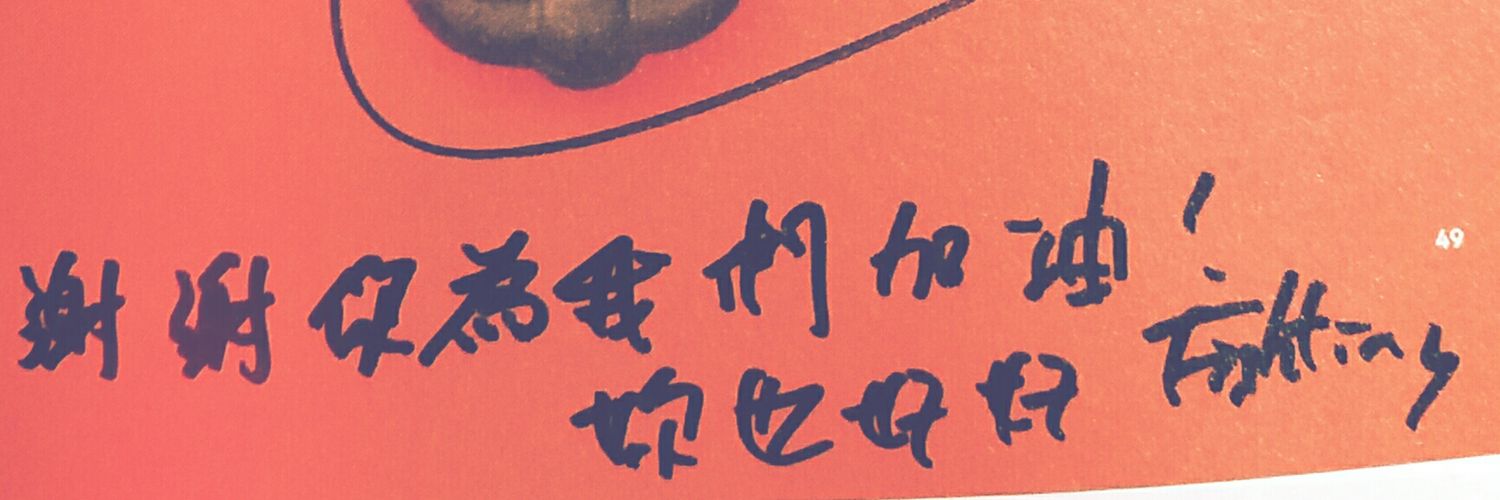 謝謝你為我們加油!
Fighting
妳也好好
49